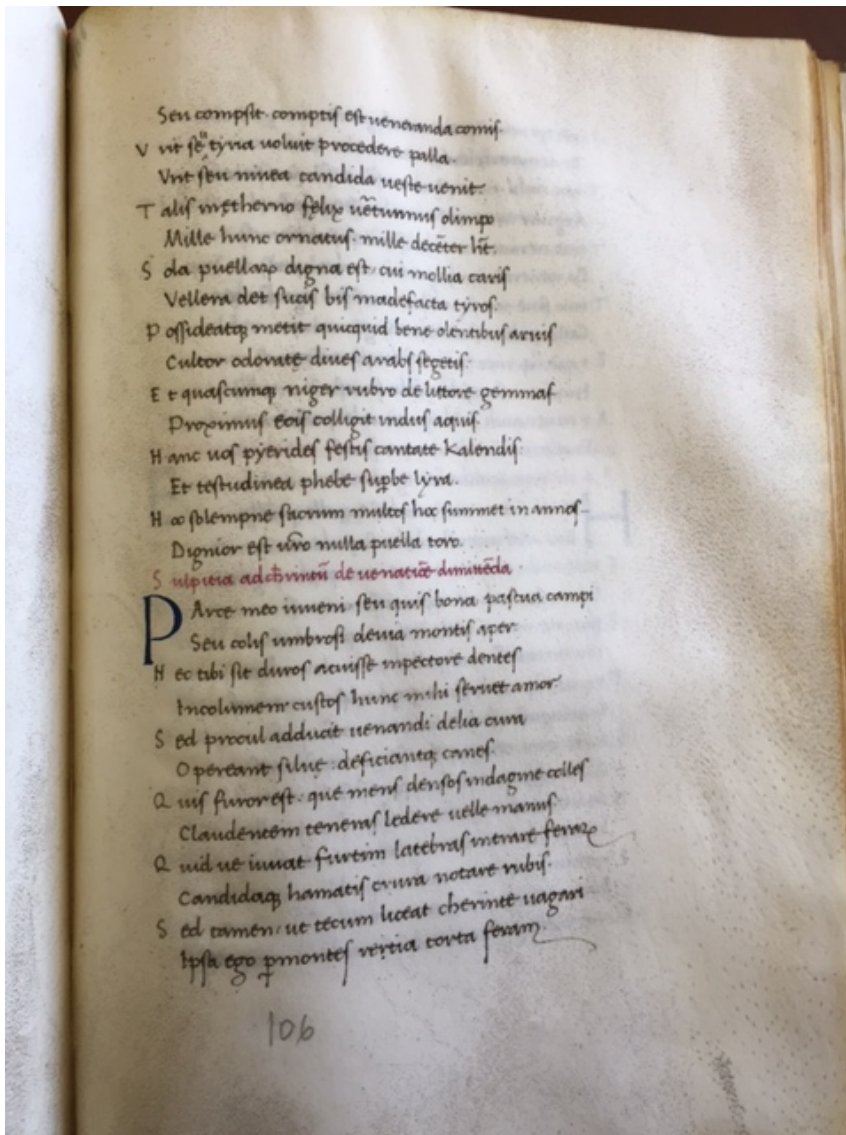 Seu compsit. comptis est ueneranda comis.
V rit seu tyria uoluit procedere palla.
Vrit seu niuea candida ueste uenit.
T alis inętherno felix uētumnus olimpo
Mille hunc ornatus. mille decēter hēt.
S ola puellaꝝ digna est. cui mollia caris
Vellera det sucis bis madefacta tyros.
P ossideatqꝫ metit quicquid bene olentibus aruis
Cultor odoratę diues arabs segetis.
E t quascumqꝫ niger rubro de littore gemmas
Proximus eois colligit indus aquis.
H anc uos pyerides festis cantate kalendis.
Et testudinea phebe suꝑbe lyra.
H oc solempne sacrum multos hoc summet in annos.
Dignior est ur̄o nulla puella toro.
S ulpitia ad cħrintū de uenatiōe dimittēda
P Arce meo iuueni seu quis bona pascua campi
Seu colis umbrosi deuia montis aper.
H ec tibi sit duros acuisse inpectore dentes
Incolumem custos hunc mihi seruet amor.
S ed procul adducit uenandi delia cura
O pereant siluę: deficiantqꝫ canes.
Q uis furor est. quę mens densos indagine colles
Claudentem teneras ledere uelle manus.
Q uid ue iuuat furtim latebras intrare feraꝝ
Candidaqꝫ hamatis crura notare rubis.
S ed tamen. ut tecum liceat cherinte uagari
Ipsa ego ꝑmontes retia torta feram.
106